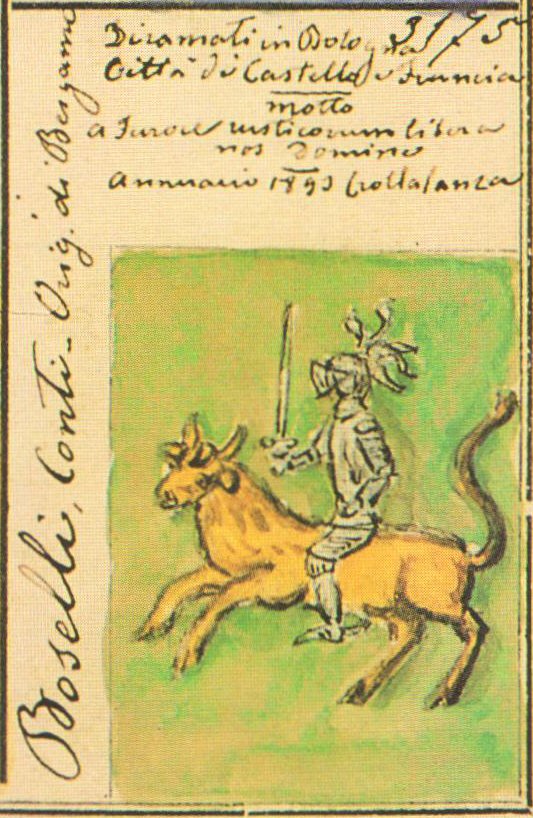 3175
Diramati in Bologna
Città di Castello e Francia
motto
a furore rusticorum libera
nos Domine
Annuario 1893 Crollalanza
Boselli, Conti - Orig. di Bergamo